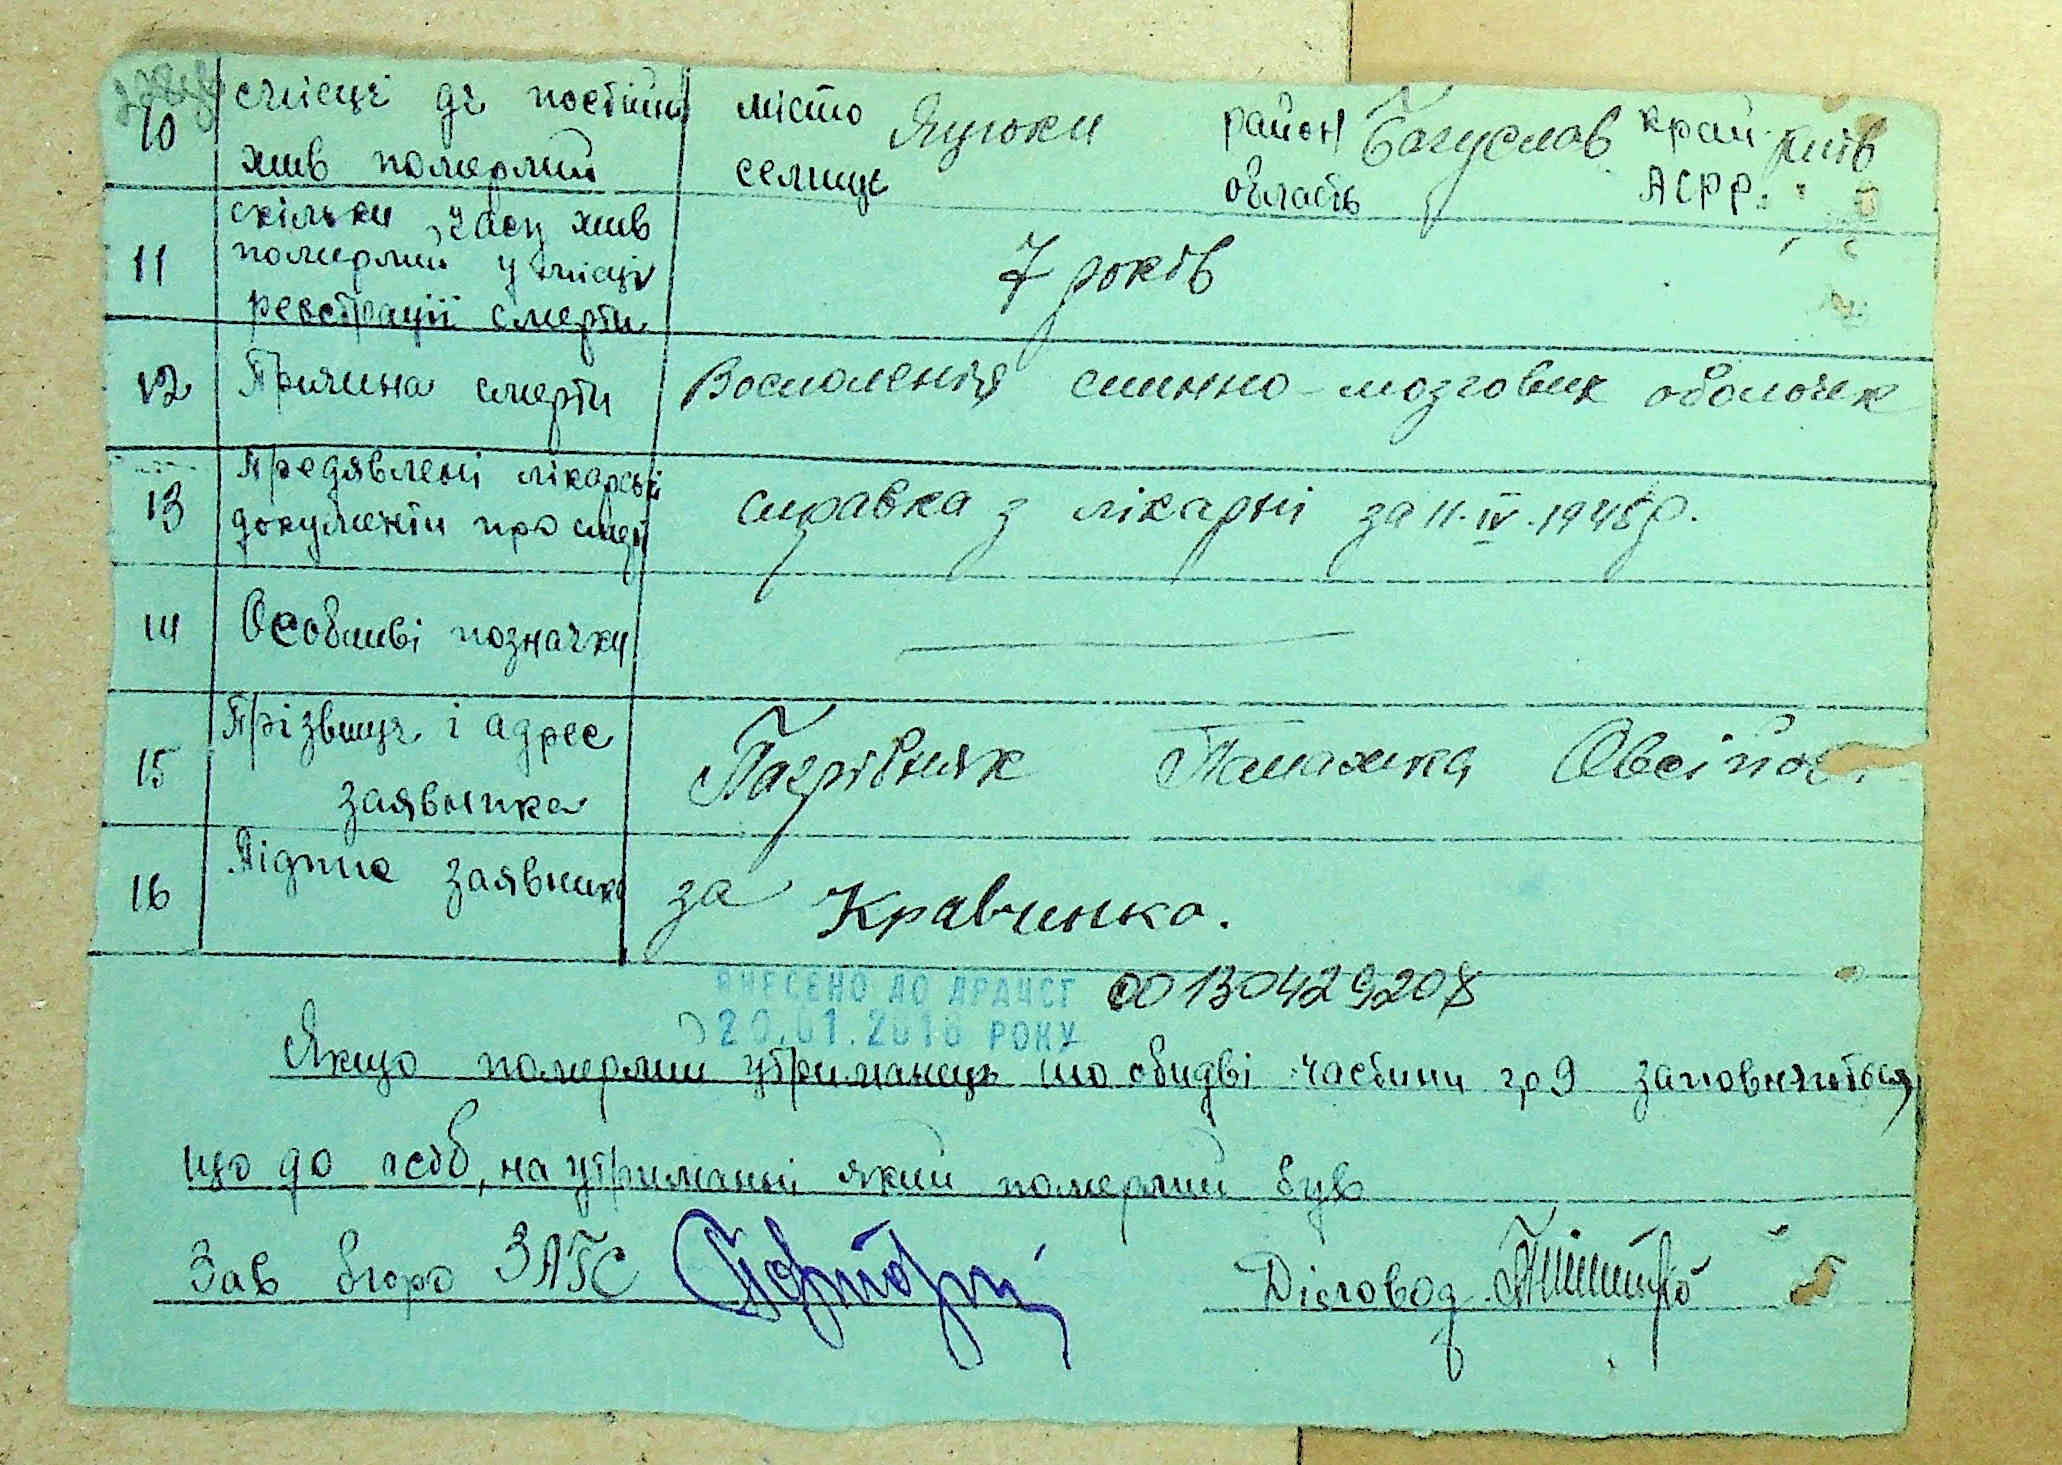 10 місце де постійно місто Яцюки район Богуслав край Київ
жив померлий селище область АСРР.
скільки часу жив
11 померлий у місці 7 років
реєстрації смерти
12 Причина смерти Воспаленія спинно-мозгових оболочек
Предявлені лікарські
13 документи про смерть справка з лікарні за 11.IV.1945р.
14 Особливі позначки —
Прізвище і адрес
15 заявника Пагрібняк Палажка Овсійов
16 Підпис заявника за Кравченко.
ВНЕСЕНО ДО ДРАЦСГ 00130429208
20.01.2016 РОКУ
Якщо померлий утриманець то обидві частини гр 9 заповняються,
що до осіб, на утриманні який померлий був
Зав бюро ЗАГС Діловод